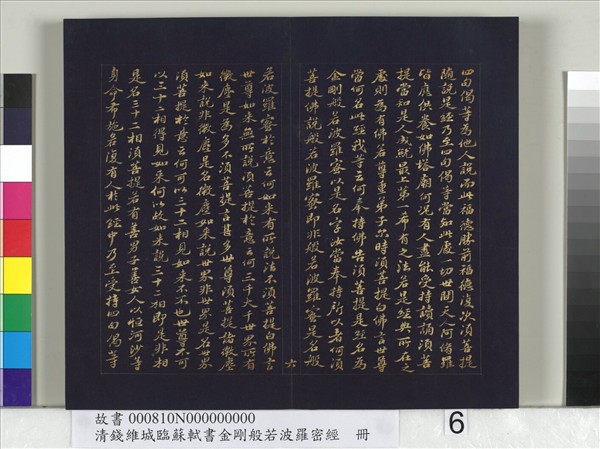 四句偈等為他人說而此福德勝前福德復次須菩提
隨說是經乃至四句偈等當知此處一切世間天人阿脩羅
皆應供養如佛塔廟何況有人盡能受持讀誦須菩
提當知是人成就最上第一希有之法若是經典所在之
處則為有佛若尊重弟子爾時須菩提白佛言世尊
當何名此經我等云何奉持佛告須菩提是經名為
金剛般若波羅蜜以是名字汝當奉持所以者何須
菩提佛說般若波羅蜜即非般若波羅蜜是名般
若波羅蜜於意云何如來有所說法不須菩提白佛言
世尊如來無所說須菩提於意云何三千大千世界所有
微塵是為多不須菩提言甚多世尊須菩提諸微塵
如來說非微塵是名微塵如來說世界非世界是名世界
須菩提於意云何可以三十二相見如來不不也世尊不可
以三十二相得見如來何以故如來說三十二相即是非相
是名三十二相須菩提若有善男子善女人以恒河沙等
身命布施若復有人於此經中乃至受持四句偈等
六
故書 000810N000000000
清錢維城臨蘇軾書金剛般若波羅密經 冊
6